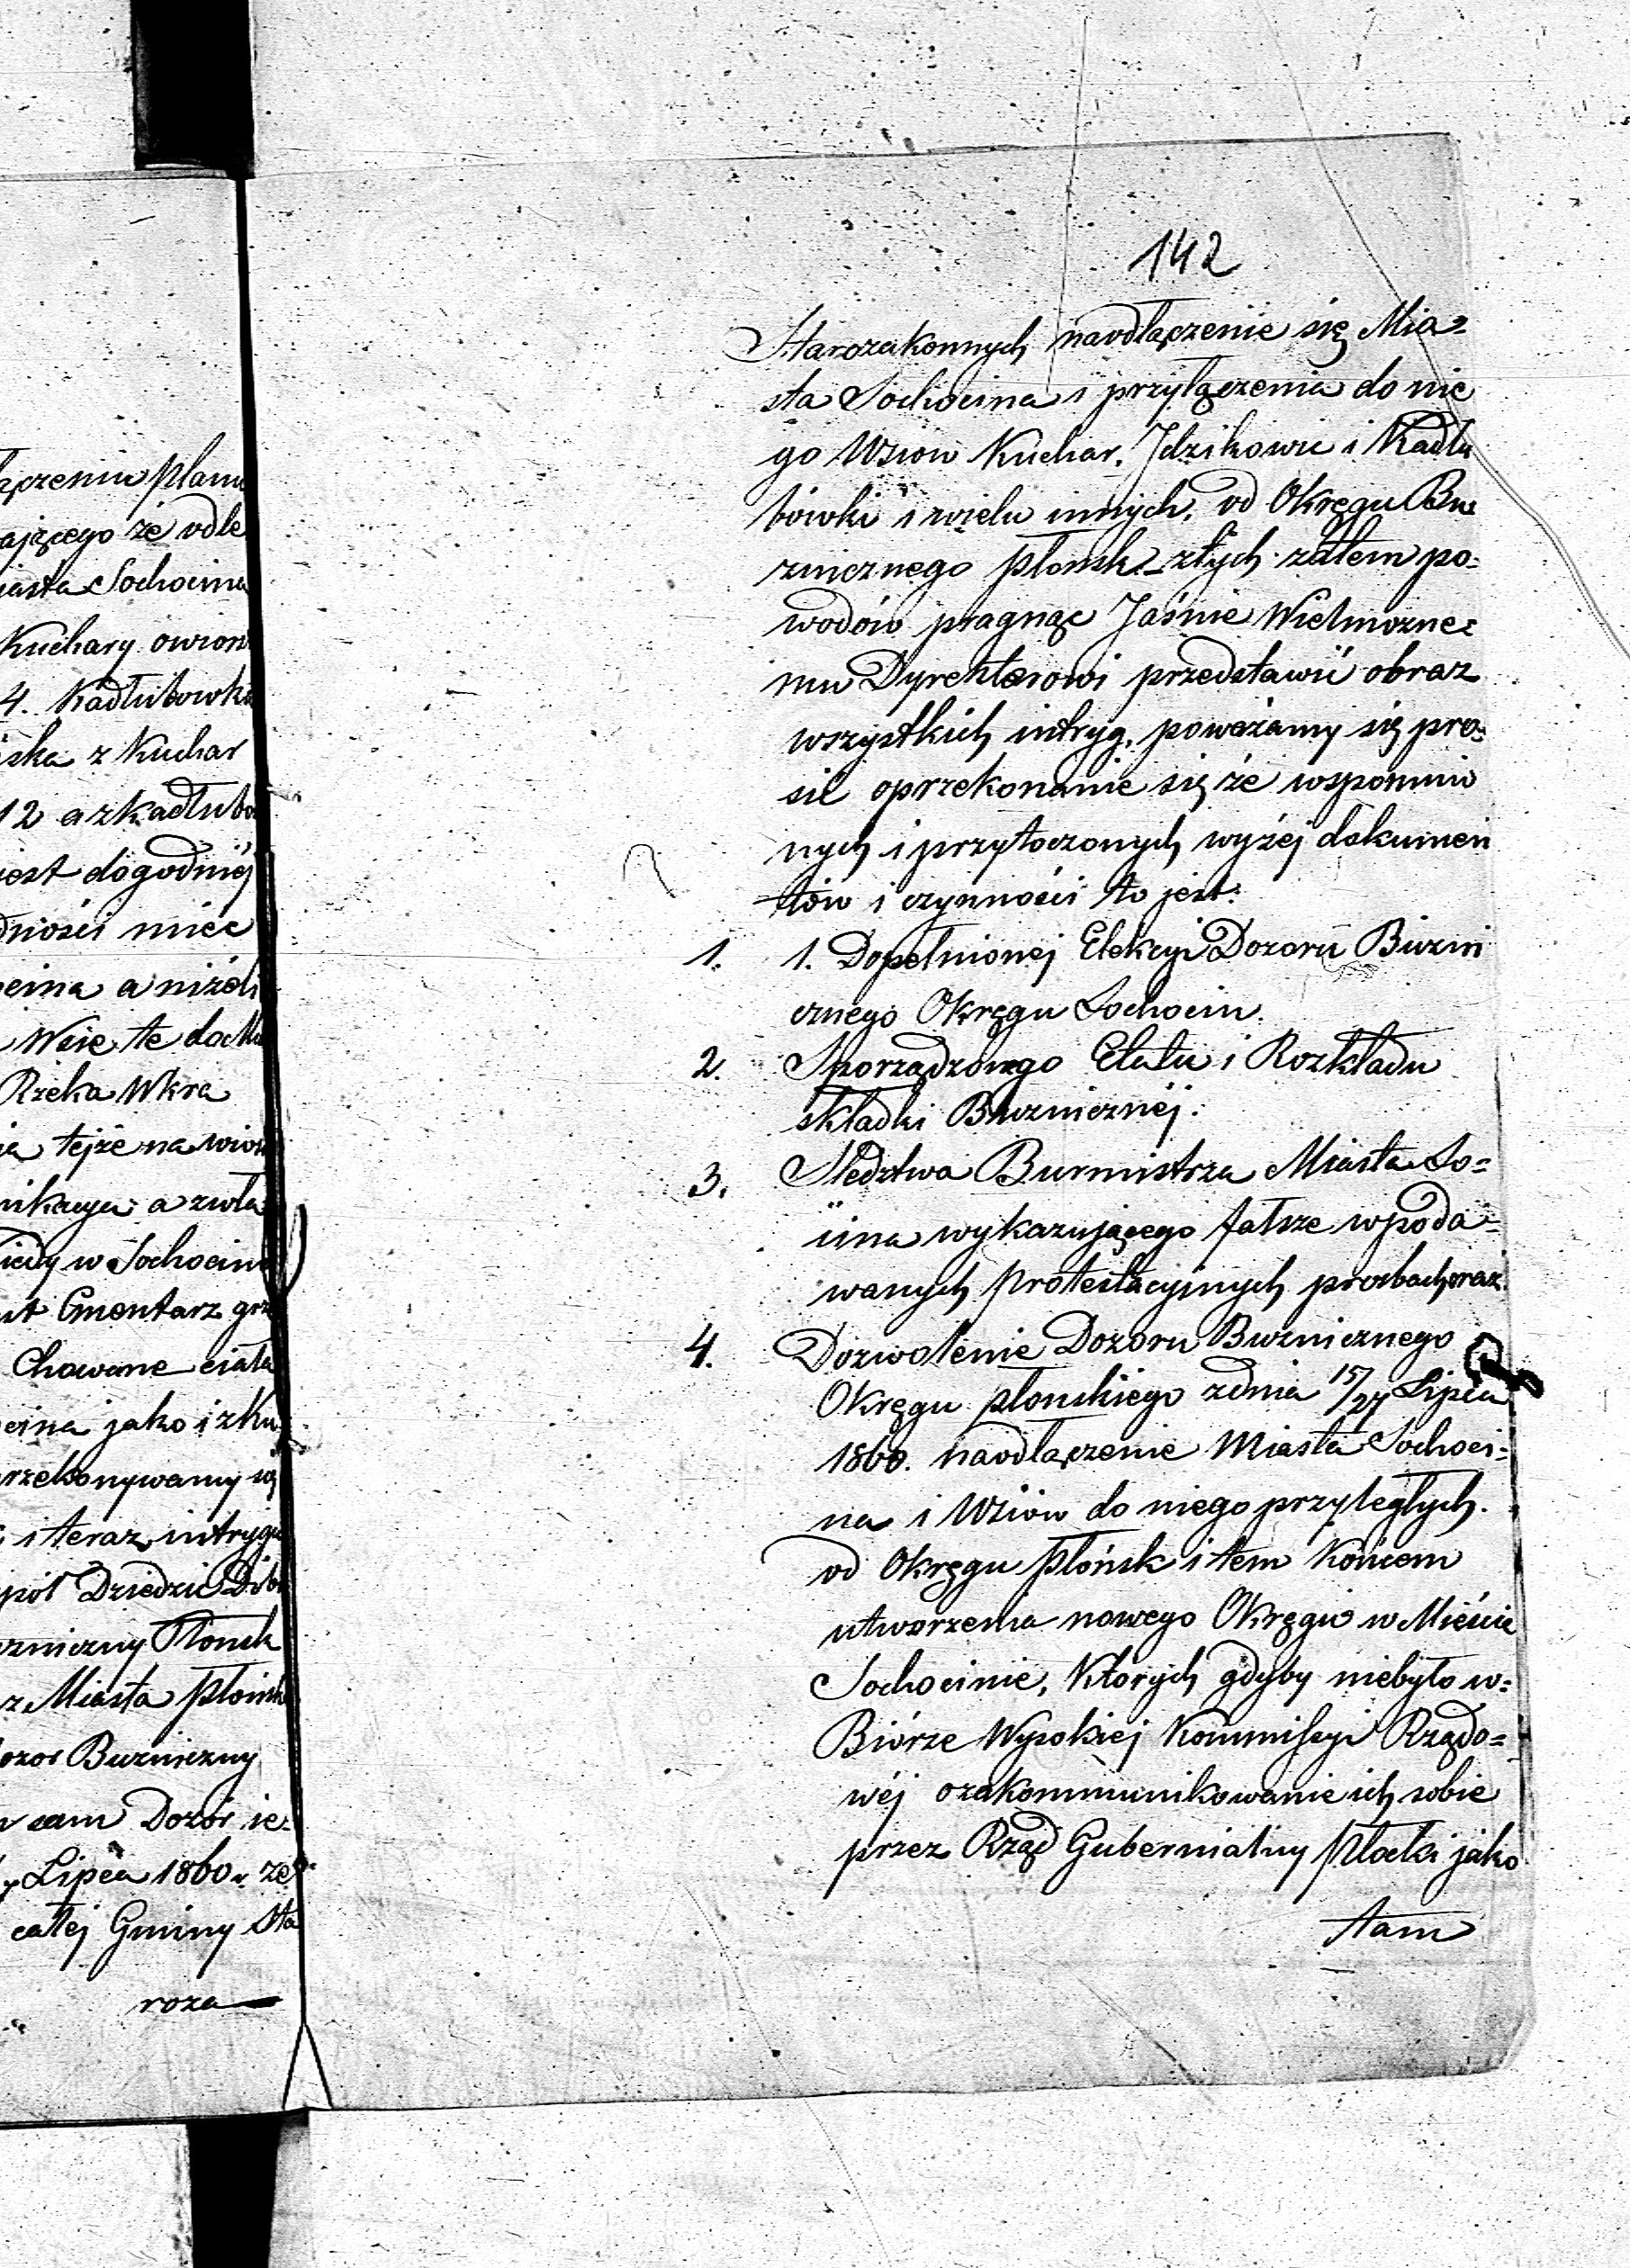 łączeniu planu
ającego że odle
iasta Sochocina
Kuchary owiorst
4. Kadłubowka
iska z Kuchar
12 a zkadłubo
jest dogodniéj
dności miéc
ocina a niżeli
Wsie te do
Rzeka Wkra
ia tejże na wios
nikacya a zwła
iedy w Sochocin
st Cmentarz grz
Chowane ciała
ocina jako i zku
przekonywamy się
i teraz intryga
spół Dziedzic
uzniczny Płonsk
z Miasta Płonsk
ozor Buzniczny
sam Dozór ie=
Lipca 1860 r. ze
całej Gminy Sta
roza
142
Starozakonnych naodłączenie się Mia=
sta Sochocina i przyłączenia do nie
go Wsiow Kuchar, Jdzikowic i Kadłu
bówki i wielu innych, od Okręgu Bu
zniczego Płonsk – ztych zatem po=
wodów pragnąc Jaśnie Wielmozne=
mu Dyrektorowi przedstawić obraz
wszystkich intryg, poważamy się pro=
sić oprzekonanie się że wspomnio
nych i przytoczonych wyżej dokumen
tów i czynności to jest:
1. 1. Dopełnionej Elekcyi Dozoru Buzni
cznego Okręgu Sochocin.
2. Sporządzonego Etatu i Rozkładu
składki Buzniczněj.
3. Sledztwa Burmistrza Miasta So=
cina wykazującego fałsze wpoda=
wanych Protestacyjnych prosbach oraz
4. Dozwolenie Dozoru Buznicznego
Okręgu płonskiego zdnia 15/27 Lipca
1860. naodłączenie Miasta Sochoci=
na i Wsiów do niego przyległych.
od Okręgu Płońsk i tem końcem
utworzenia nowego Okręgu w Mieście
Sochocinie, Ktorych gdyby niebyło w=
Biórze Wysokiej Kommissyi Rządo=
wéj ozakommunikowanie ich sobie
przez Rząd Gubernialny Płocki jako
tam